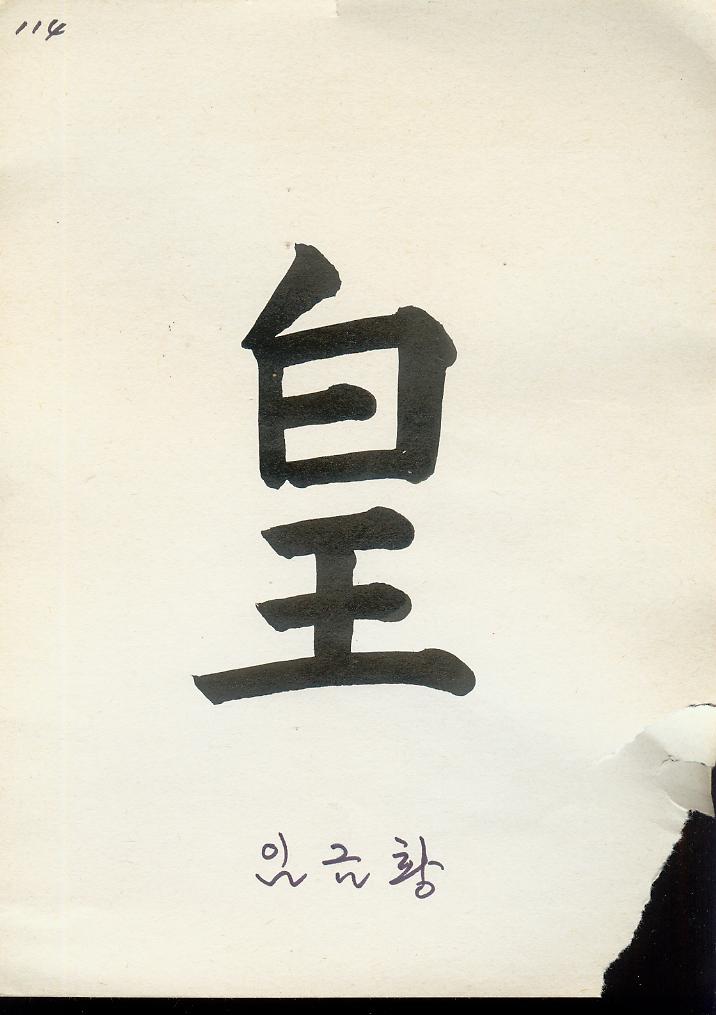 114
皇
임금황